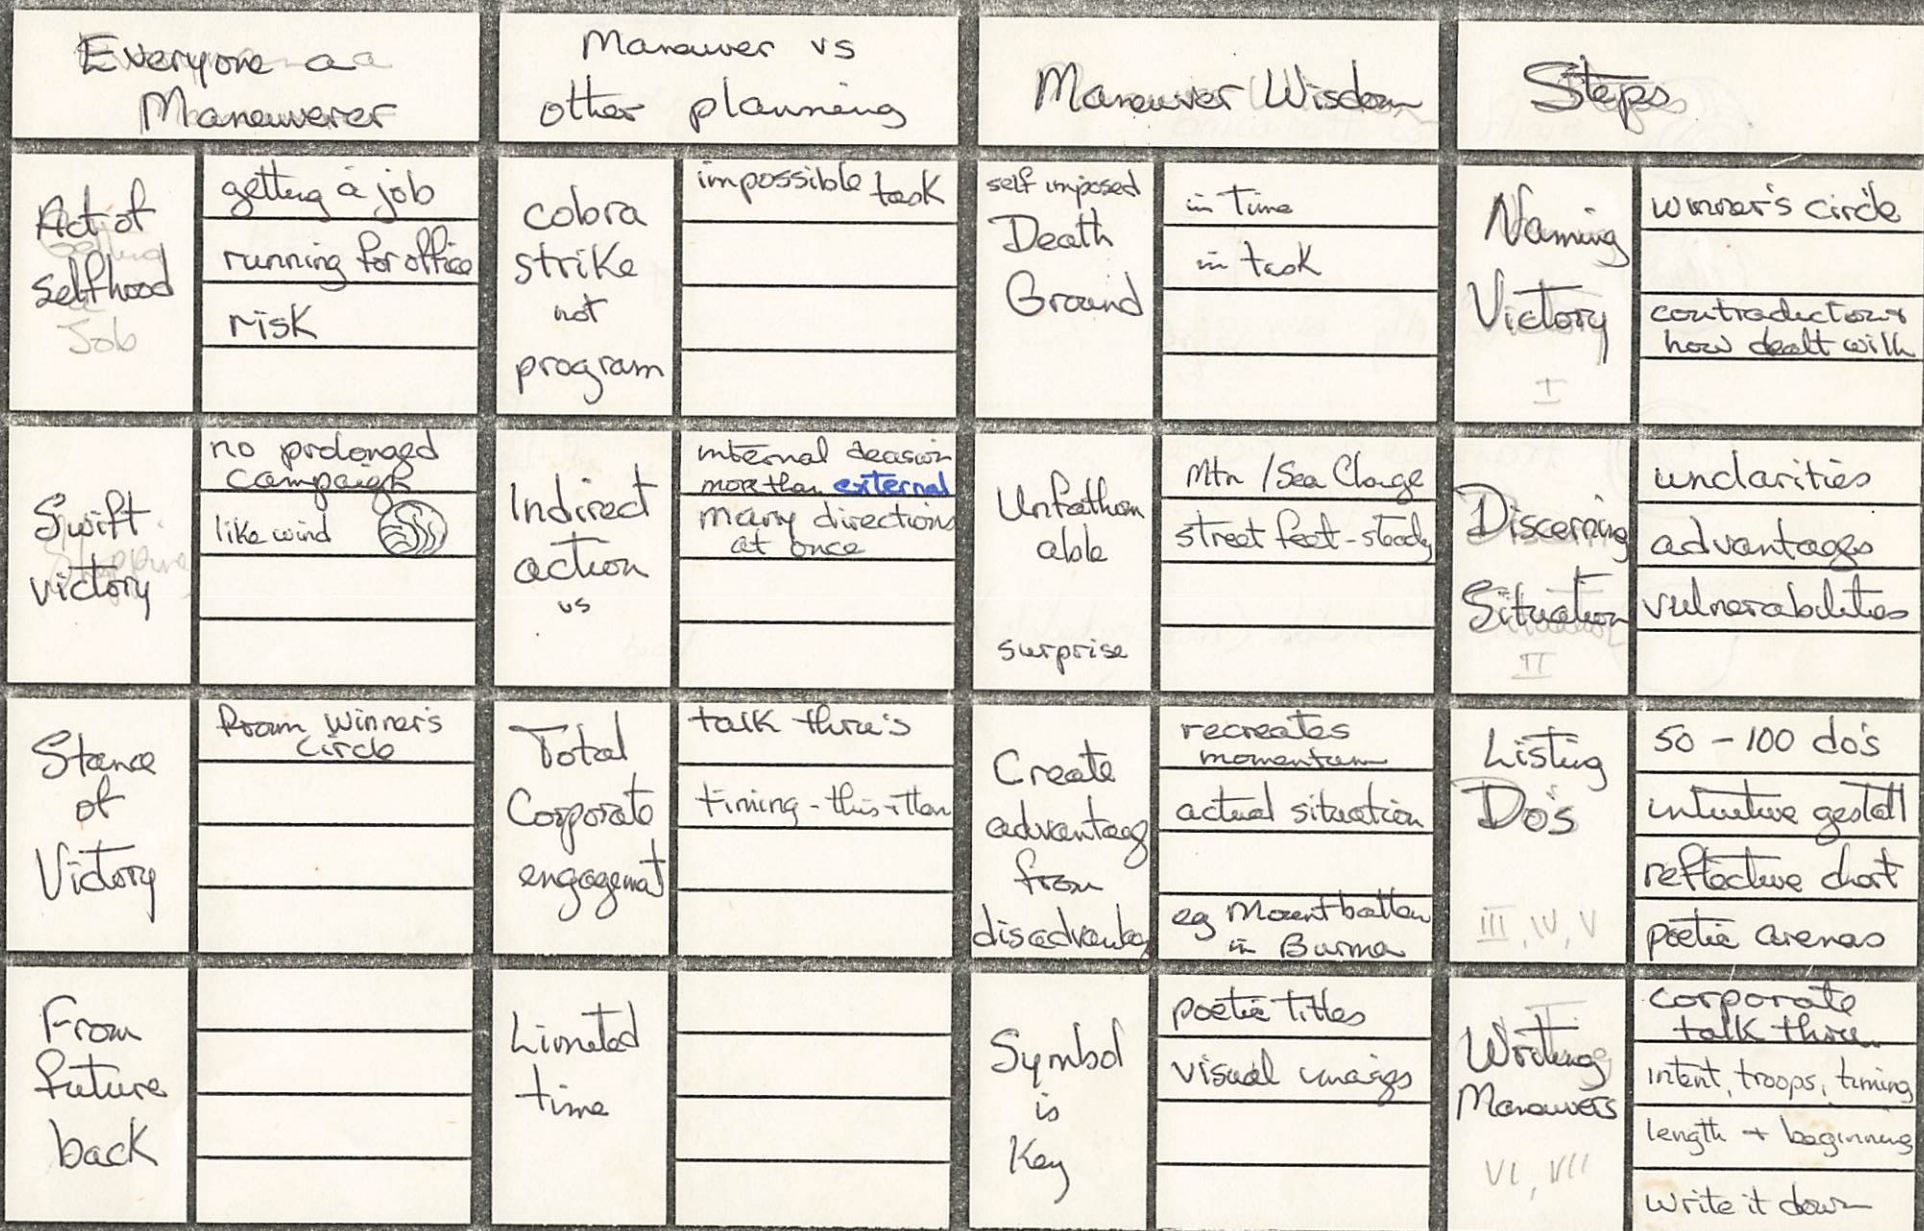 Everyone a
Maneuverer
Act of
selfhood
Job
getting a job
running for office
risk
Swift
victory
no prolonged
campaign
like wind
Stance
of
Victory
From winner's
circle
From
future
back
Maneuver vs
other planning
cobra
strike
not
program
impossible task
Indirect
action
vs
internal decision
more than external
many directions
at once
Total
Corporate
engagemat
talk thru's
timing - this + then
Limited
time
Maneuver Wisdom
self imposed
Death
Ground
in time
in task
Unfathom
able
surprise
Mtn / Sea Change
street feet - steady
Create
advantag
from
disadvantag
recreates
momentum
actual situation
eg Mountbatten
in Burma
Symbol
is
Key
poetic titles
visual images
Steps
Naming
Victory
I
winner's circle
contradictions
how dealt with
Discerning
Situation
II
unclarities
advantages
vulnerabilities
Listing
Do's
III, IV, V
50 - 100 do's
intuitive gestalt
reflective chart
poetic arenas
Writing
Maneuvers
VI, VII
corporate
talk thru
intent, troops, timing
length + beginning
write it down